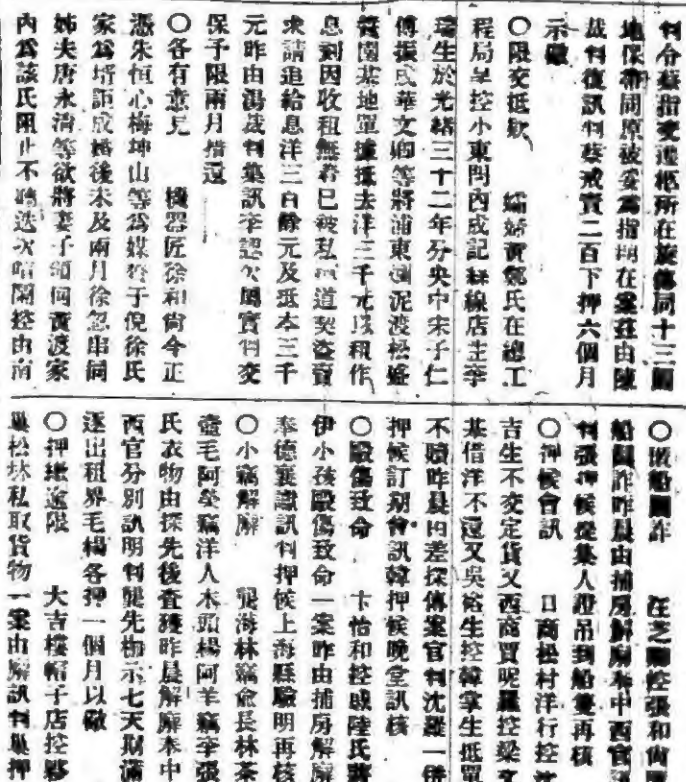 判令蔡指交連柩所在旋傳同十三圖
地保帶同原被妥爲指明在案茲由陳
裁判復訊判蔡戒責二百下押六個月
示儆
○限交抵欵 孀婦黃鄭氏在總工
程局呈控小東門西成記絲線店主李
瑞生於光緒三十二年分央中宋子仁
傅振氏華文卿等將浦東爛泥渡松盛
基地單據抵去洋三千元以租作
息到因收租無着已被私道契盜賣
求請追給息洋三百餘元及抵本三千
元昨由湯裁判集訊李認欠屬實判交
保予限兩月措還
○各有意見 機器匠徐和尙今正
憑朱恒心梅坤山等爲媒贅于倪徐氏
家爲壻詎成婚後未及兩月徐忽串同
姊夫唐永淸等欲將妻子領囘黃渡家
內爲該氏阻止不聽迭次唷鬧控由南
○ 船圖詐 汪芝 控張和尙
船圖詐昨晨由捕房解廨奉中西官
判張押候從集人證吊到船隻再核
○押候會訊 日商松村洋行控
吉生不交定貨又西商買呢羅控梁
基借洋不還又吳裕生控韓掌生抵單
不贖昨晨由差探傳案官判沈羅一併
押候訂期會訊韓押候晚堂訊核
○毆傷致命 卞怡和控戚陸氏將
伊小孩毆傷致命一案昨由捕房解廨
奉德襄讞訊判押候上海縣驗明再核
○小竊解廨 龍海林竊俞長林茶
壺毛阿榮竊洋人木頭楊阿羊竊李張
氏衣物由探先後查獲昨晨解廨奉中
西官分別訊明判龍先枷示七天期滿
逐出租界毛楊各押一個月以儆
○押繳逾限 大吉樓帽子店控夥
巢松林私取貨物一案由廨訊判巢押